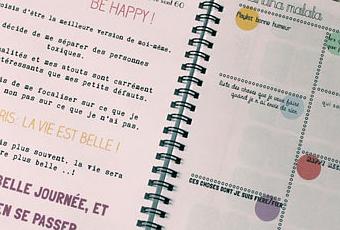 BE HAPPY!
oisis d'être la meilleure version de moi-même.
décide de me séparer des personnes
toxiques.
alités et mes atouts sont carrément
téressants que mes petits défauts.
is de me focaliser sur ce que je
non pas sur ce que je n'ai pas.
RIS: LA VIE EST BELLE !
is plus souvent, la vie sera
re plus belle ..!
BELLE JOURNÉE, ET
EN SE PASSER
una matata
Playlist bonne humeur
liste des choses que je veux faire
quand je n'ai envie de rien
CES CHOSES DONT JE SUIS FIÈRE/FIER